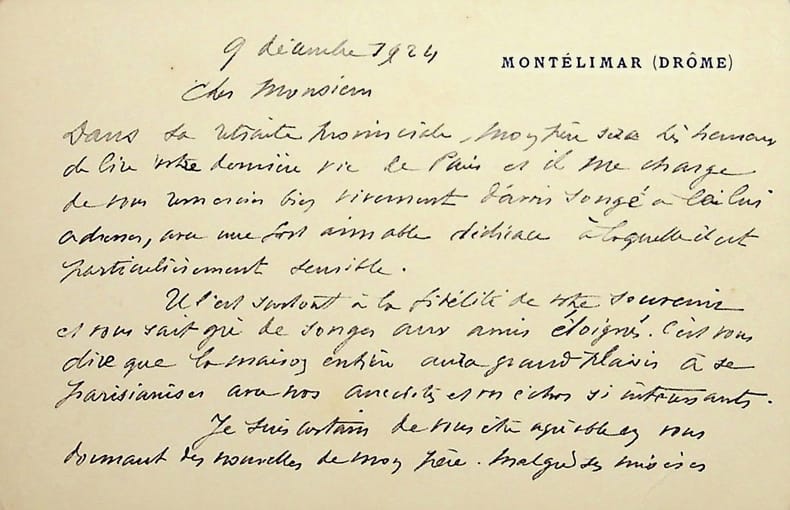 9 décembre 1924
MONTÉLIMAR (DRÔME)
Cher Monsieur
Dans sa retraite provinciale, mon père sera très heureux
de lire votre dernière vie de Paris et il me charge
de vous remercier bien vivement d'avoir songé à la lui
adresser, avec une fort aimable dédicace à laquelle il est
particulièrement sensible.
Il l'est surtout à la fidélité de votre souvenir
et vous sait gré de songer aux amis éloignés. C'est vous
dire que la maison entière aura grand plaisir à se
parisianiser avec vos anecdotes et vos échos si intéressants.
Je suis certain de vous être agréable en vous
donnant des nouvelles de mon père. Malgré ses misères